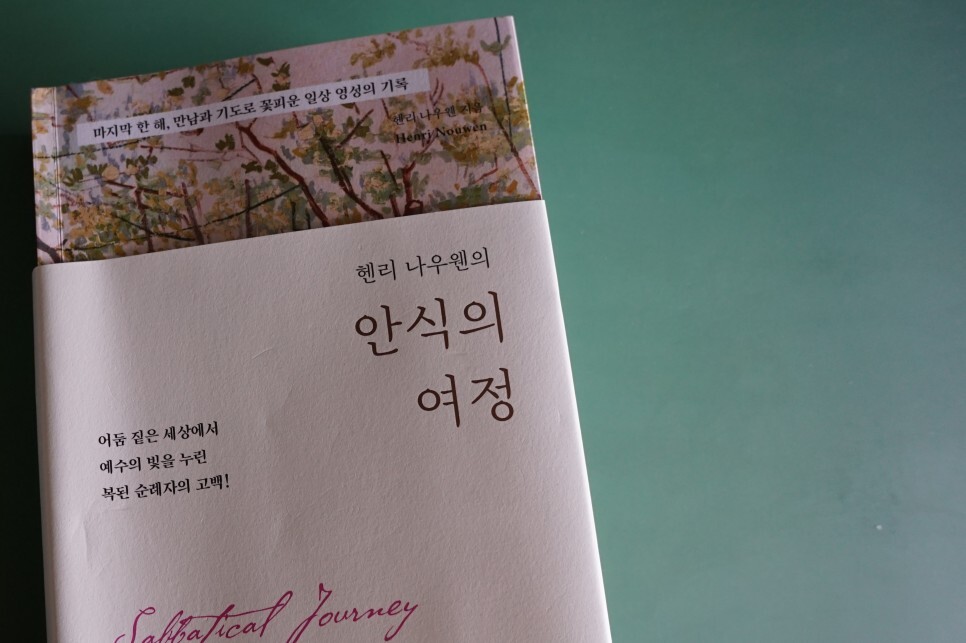 마지막 한 해, 만남과 기도로 꽃피운 일상 영성의 기록
헨리 나우웬 지음
Henri Nouwen
헨리 나우웬의
안식의
여정
어둠 짙은 세상에서
예수의 빛을 누린
복된 순례자의 고백!
Sabbatical Journey